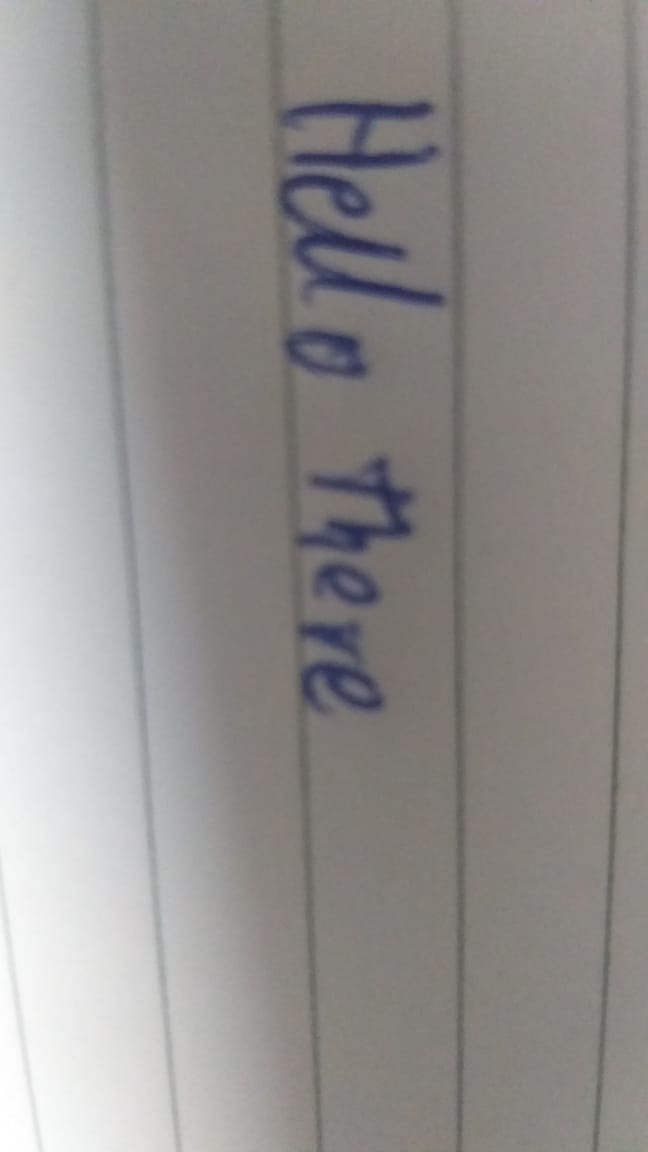 Hello there